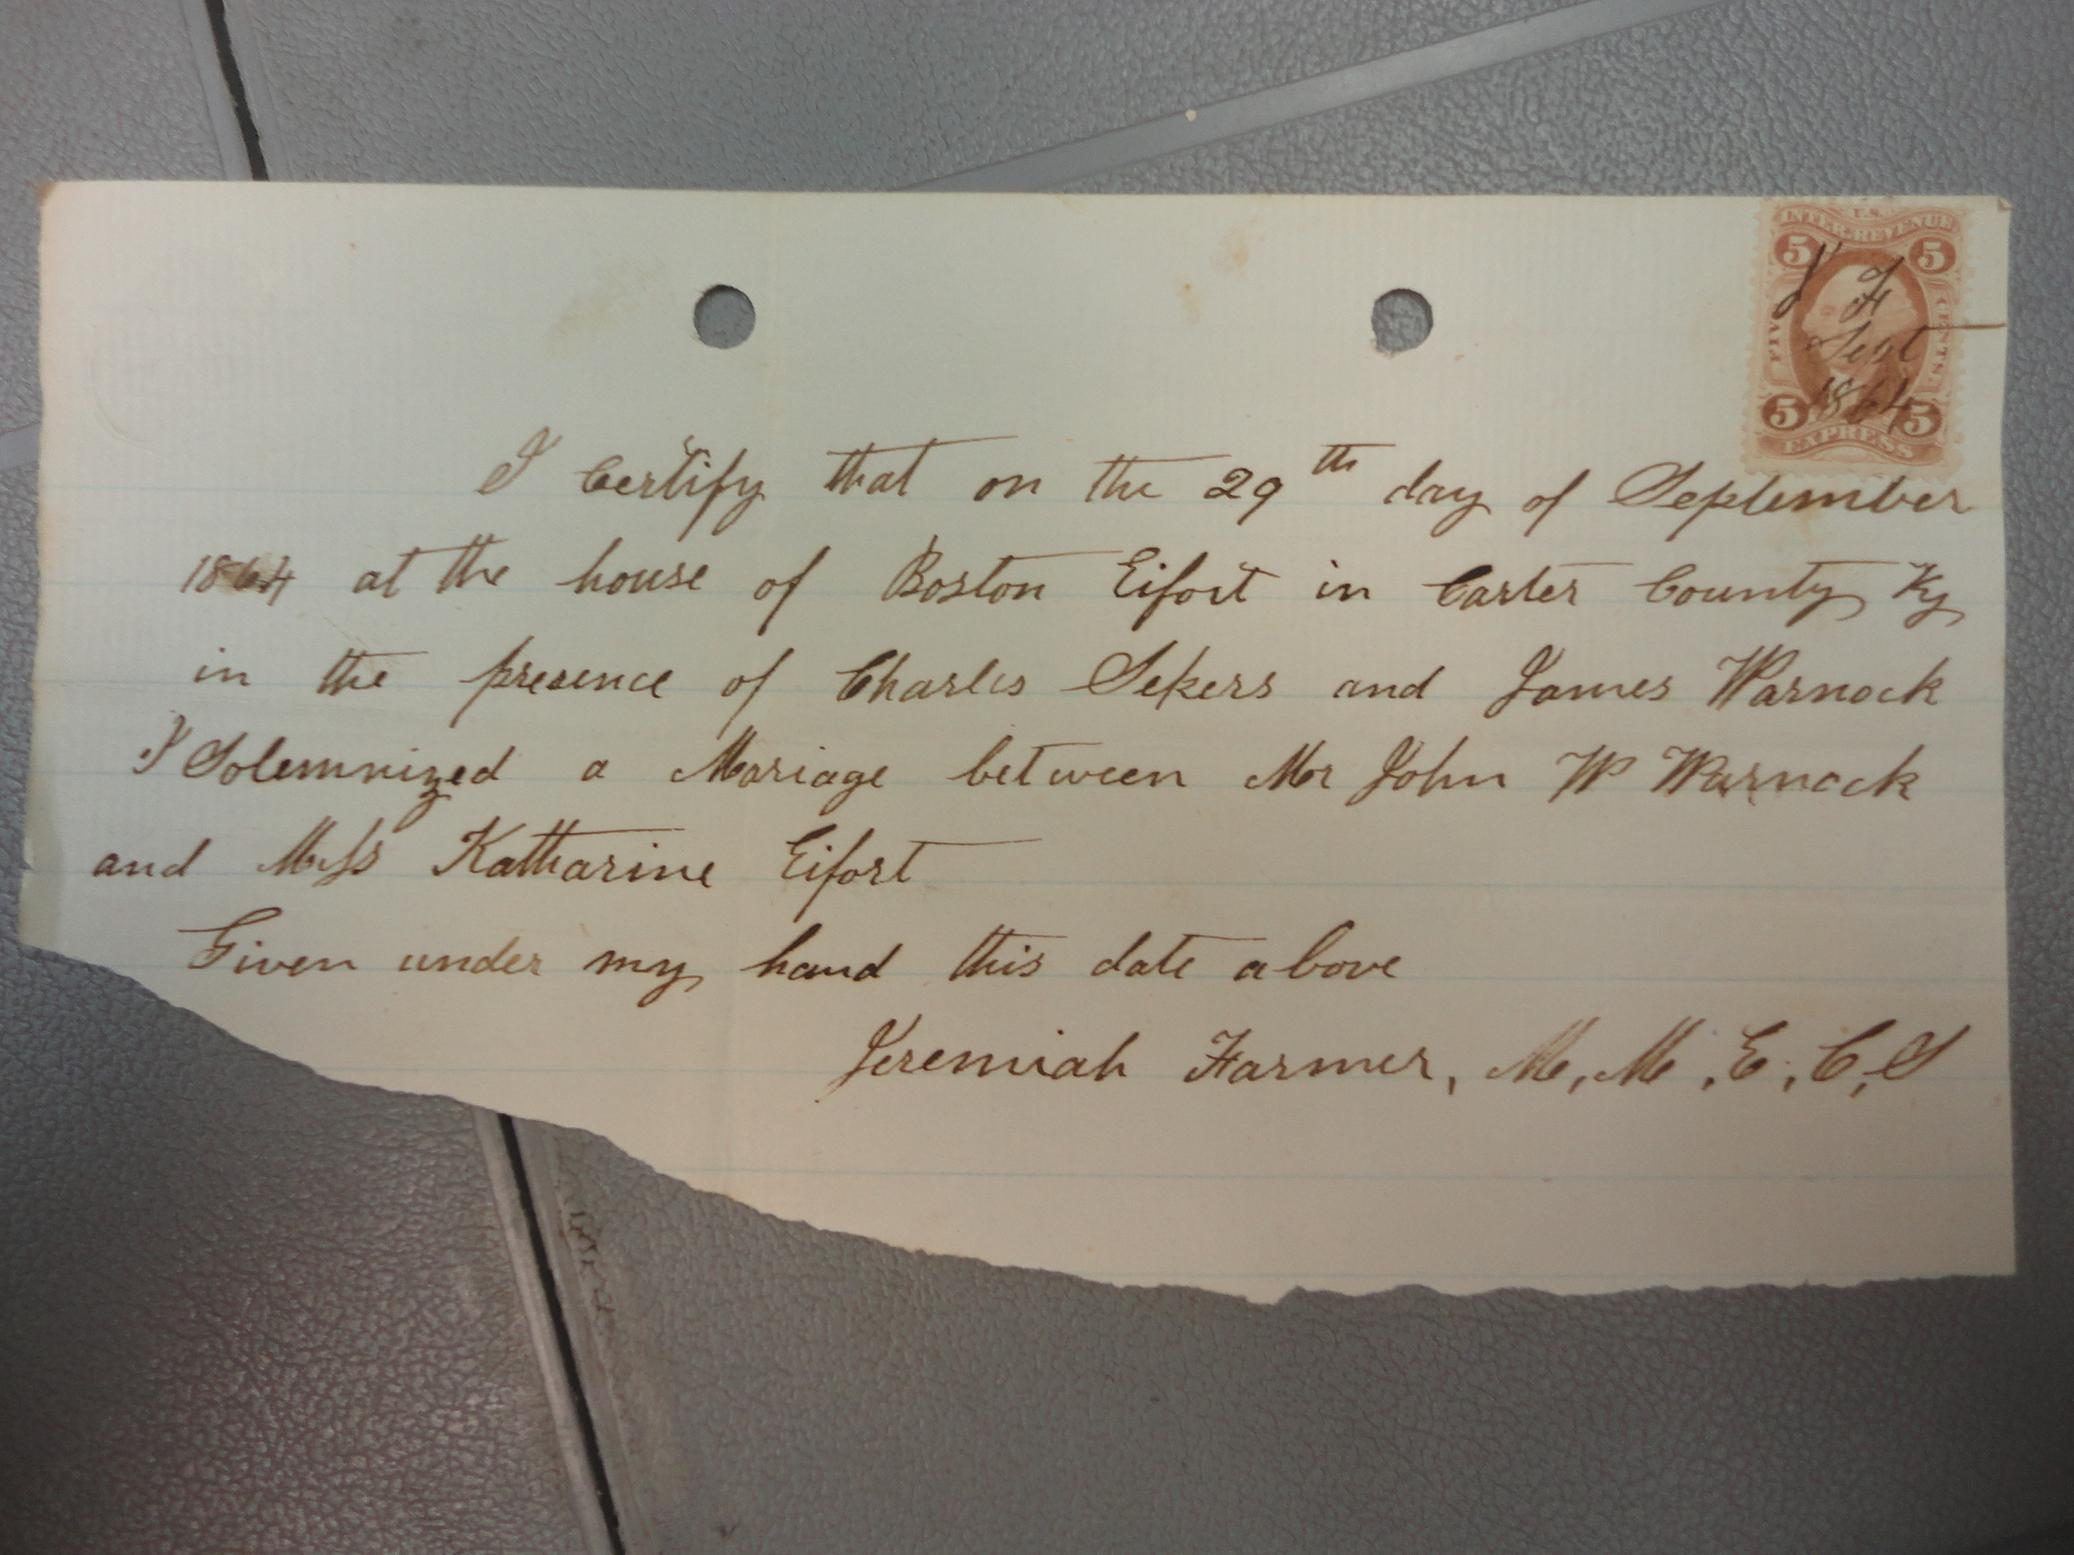 U.S.
INTER. REVENUE
5 5
FIVE CENTS.
J F
Sept
1864
5 5
EXPRESS
I Certify that on the 29th day of September
1864 at the house of Boston Eifort in Carter County Ky
in the presence of Charles Sekers and James Warnock
I Solemnized a Mariage between Mr John W Warnock
and Miss Katharine Eifort
Given under my hand this date above
Jeremiah Farmer, M, M, E, C, S